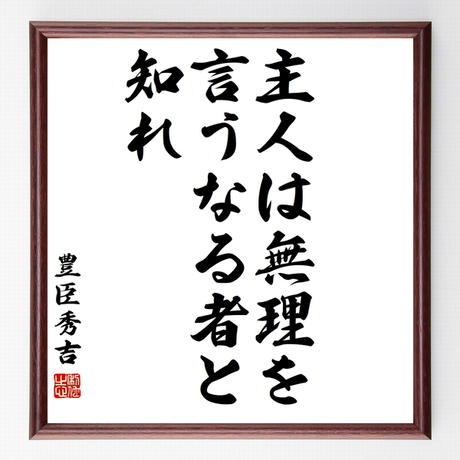 主人は無理を
言うなる者と
知れ
豊臣秀吉